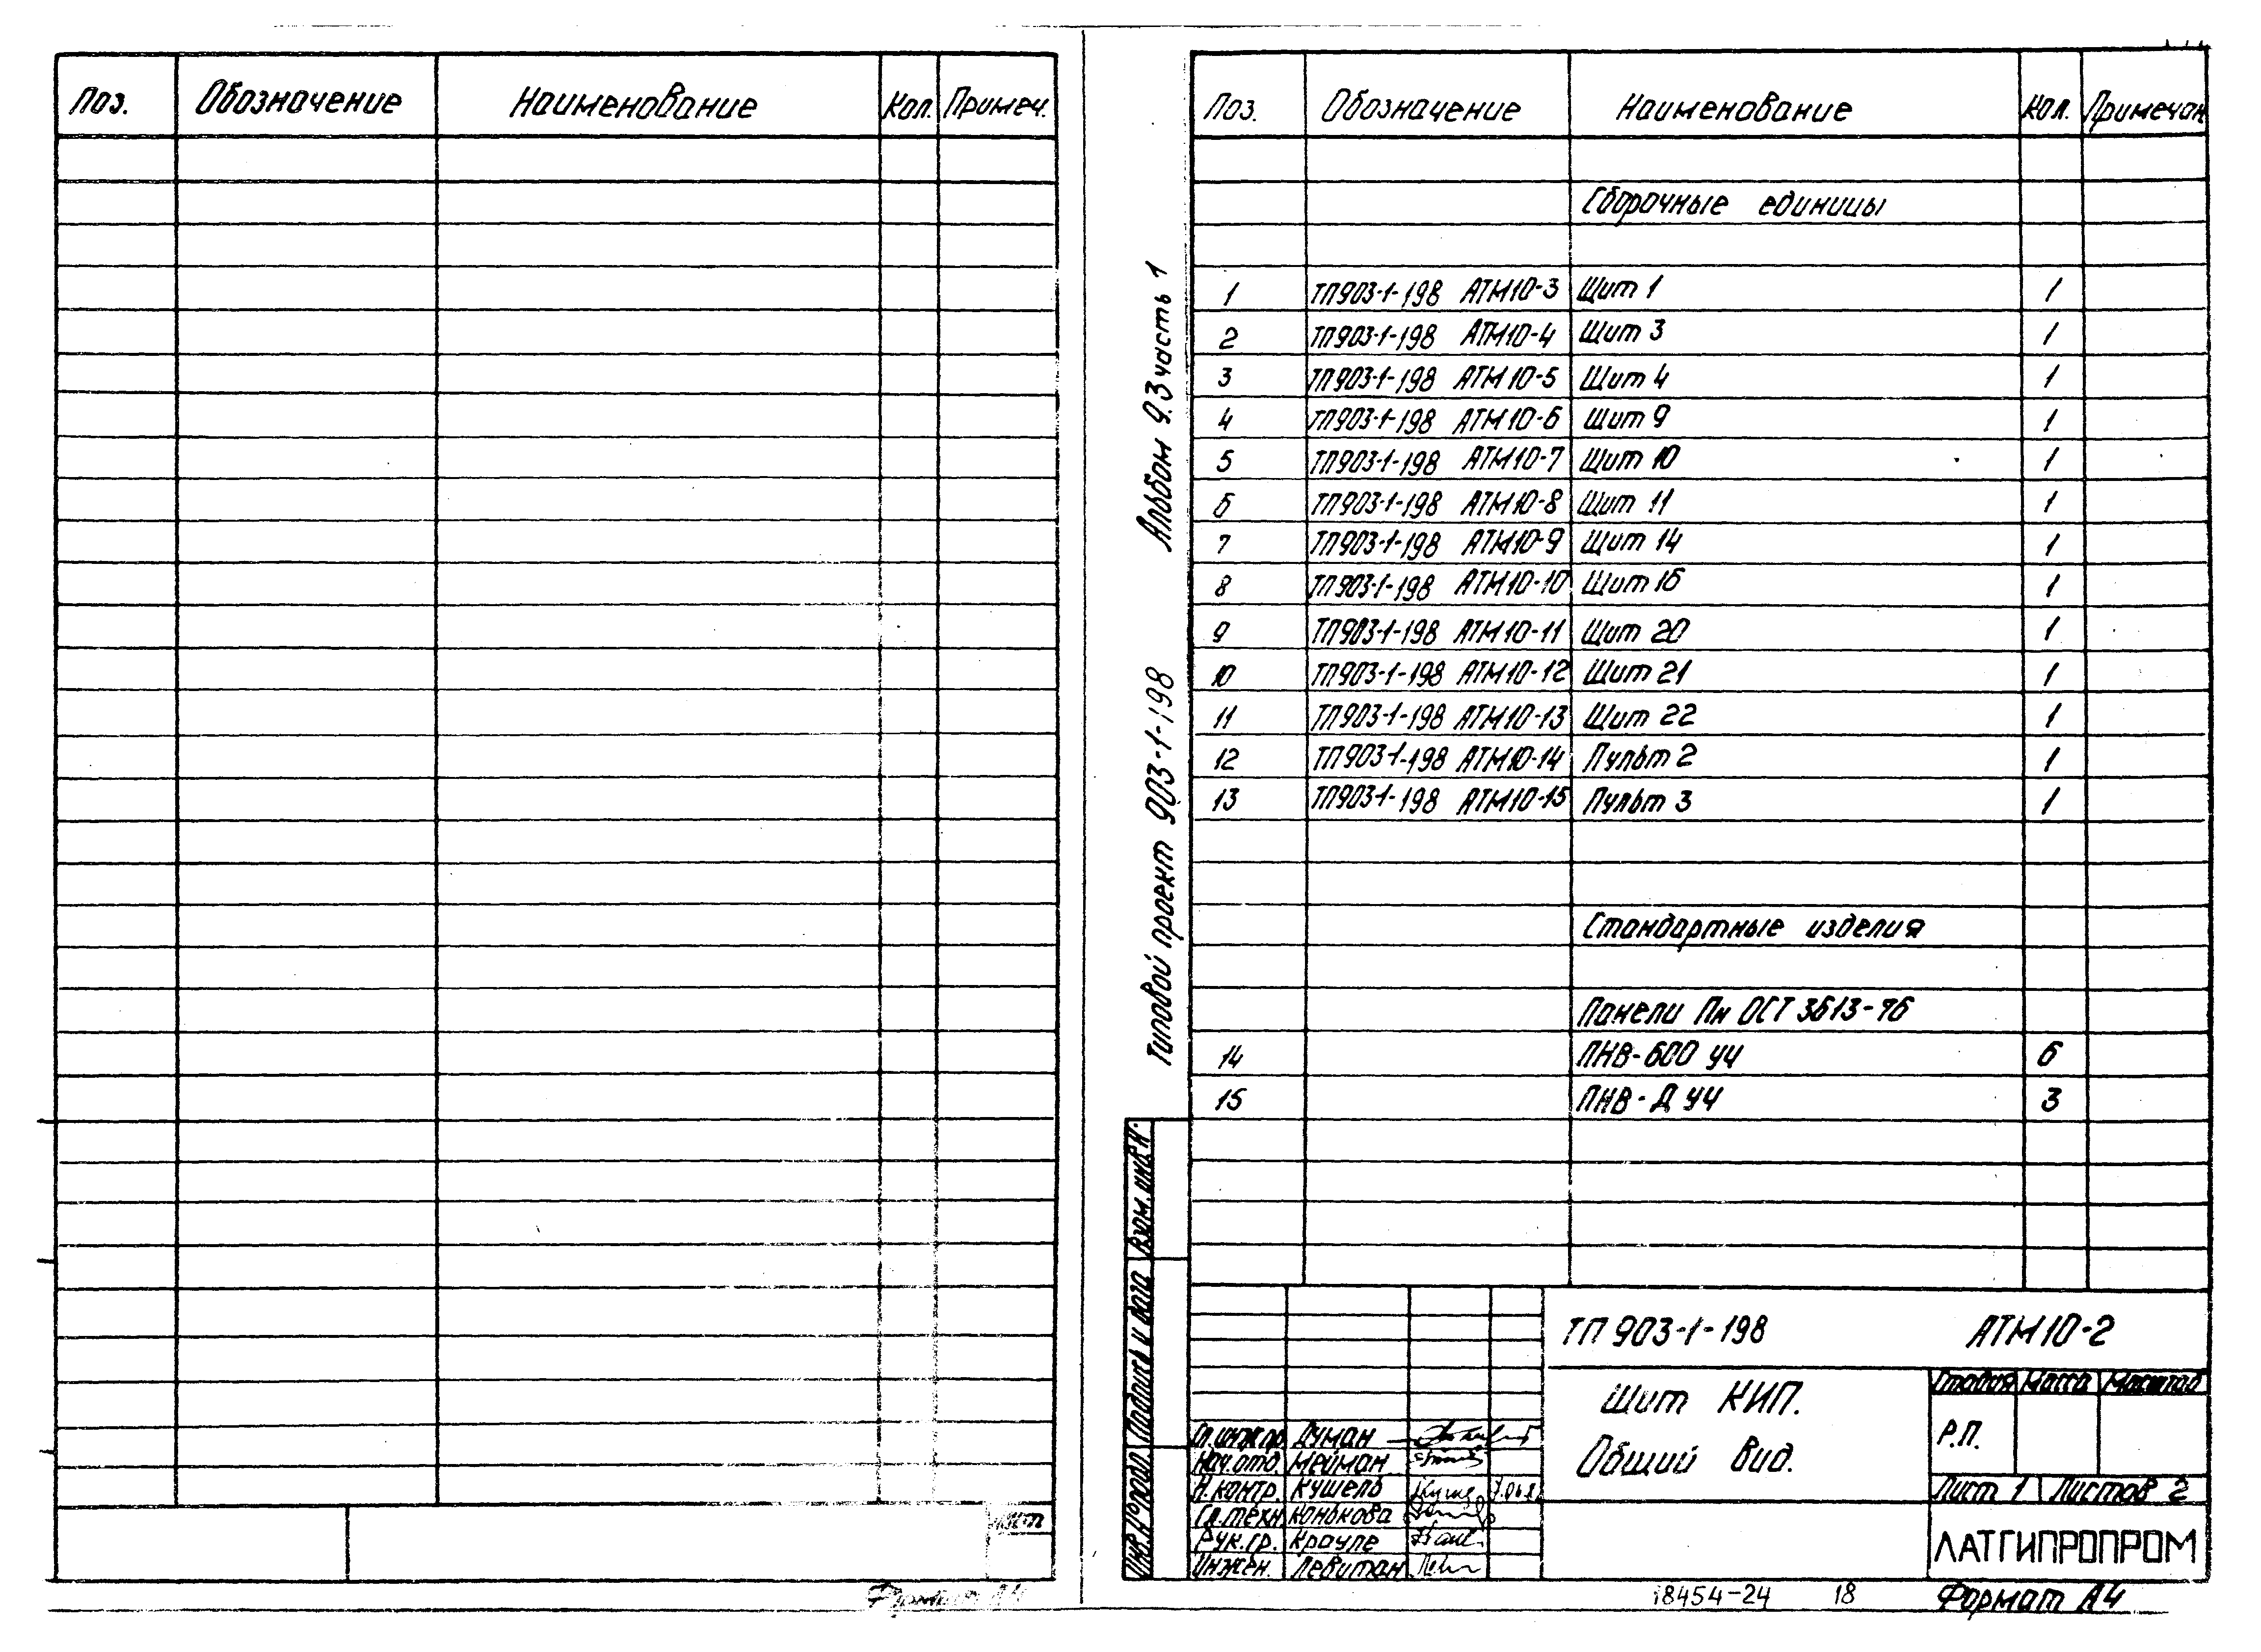 Поз. Обозначение Наименование Кол. Примеч.
Лист
Формат А4
Альбом 9.3 часть 1
Типовой проект 903-1-198
Взам. инв. №
Подпись и дата
Инв. № подл.
Поз. Обозначение Наименование Кол. Примечан
Сборочные единицы
1 ТП903-1-198 АТМ10-3 Щит 1 1
2 ТП903-1-198 АТМ10-4 Щит 3 1
3 ТП903-1-198 АТМ10-5 Щит 4 1
4 ТП903-1-198 АТМ10-6 Щит 9 1
5 ТП903-1-198 АТМ10-7 Щит 10 1
6 ТП903-1-198 АТМ10-8 Щит 11 1
7 ТП903-1-198 АТМ10-9 Щит 14 1
8 ТП903-1-198 АТМ10-10 Щит 16 1
9 ТП903-1-198 АТМ10-11 Щит 20 1
10 ТП903-1-198 АТМ10-12 Щит 21 1
11 ТП903-1-198 АТМ10-13 Щит 22 1
12 ТП903-1-198 АТМ10-14 Пульт 2 1
13 ТП903-1-198 АТМ10-15 Пульт 3 1
Стандартные изделия
Панели Пн ОСТ 3613-76
14 ПНВ-600 УЧ 6
15 ПНВ-Д УЧ 3
ТП 903-1-198 АТМ10-2
Щит КИП.
Общий вид.
Стадия Масса Масштаб
Р.П.
Лист 1 Листов 2
ЛАТГИПРОПРОМ
Гл. инж. пр. Думан
Нач. отд. Мейман
Н. контр. Кушель
Гл. техн. Конькова
Рук. гр. Крауле
Инжен. Левитан
18454-24 18
Формат А4